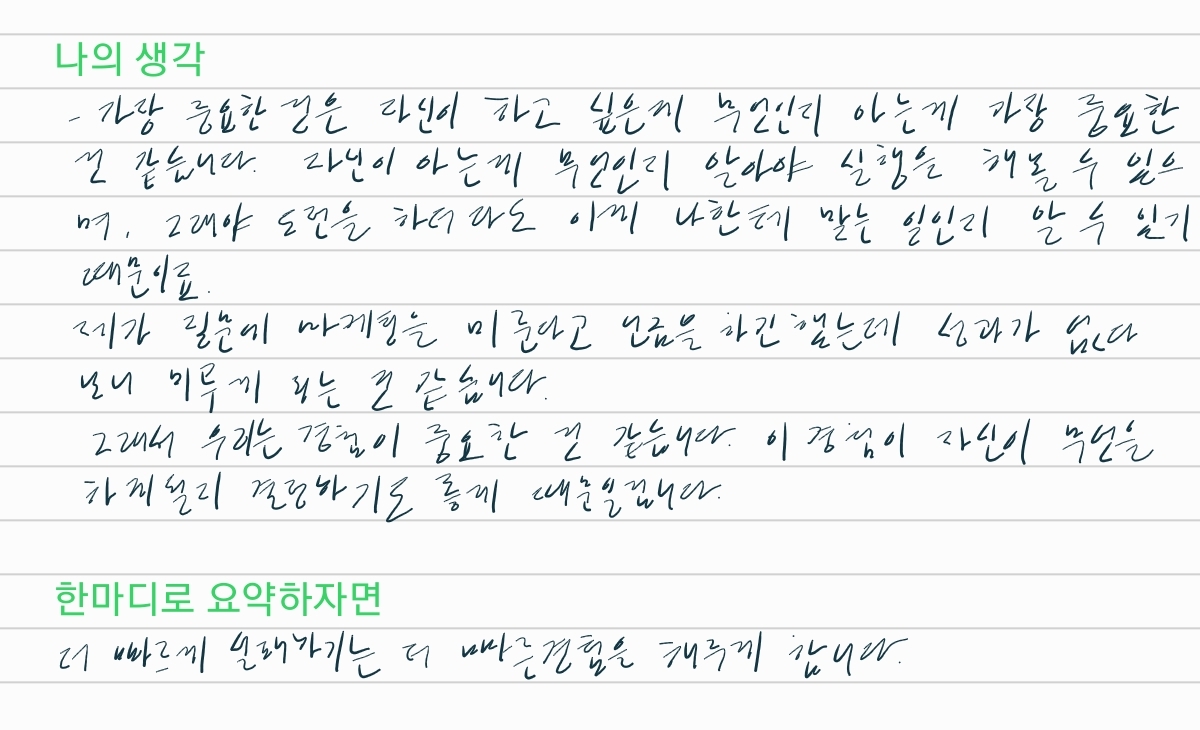 나의 생각
- 가장 중요한 것은 자신이 하고 싶은게 무엇인지 아는게 가장 중요한
것 같습니다. 자신이 아는게 무엇인지 알아야 실행을 해볼 수 있으
며, 그래야 도전을 하더라도 이게 나한테 맞는 일인지 알 수 있기
때문이죠.
제가 질문에 마케팅을 미룬다고 언급을 하긴 했는데 성과가 없다
보니 미루게 되는 것 같습니다.
그래서 우리는 경험이 중요한 것 같습니다. 이 경험이 자신이 무엇을
하게 될지 결정하기도 때문일겁니다.
한마디로 요약하자면
더 빠르게 실패하기는 더 빠른 경험을 해주게 합니다.